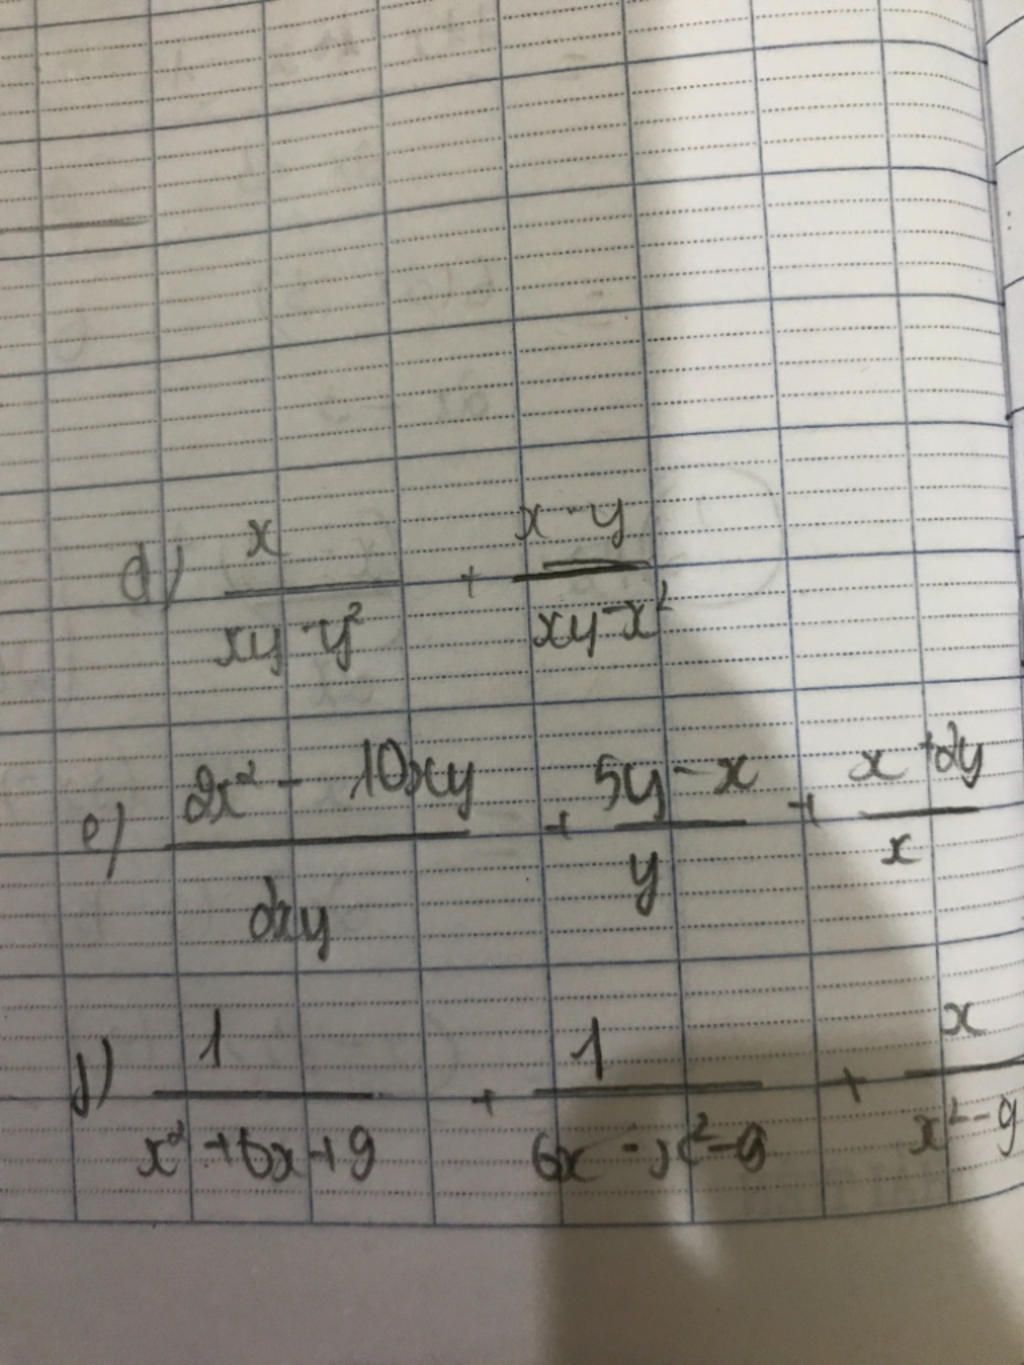 d) x/(xy - y²) + (x - y)/(xy - x²)
e) (2x² - 10xy)/(2xy) + (5y - x)/y + (x + 2y)/x
f) 1/(x² + 6x + 9) + 1/(6x - x² - 9) + x/(x² - 9)